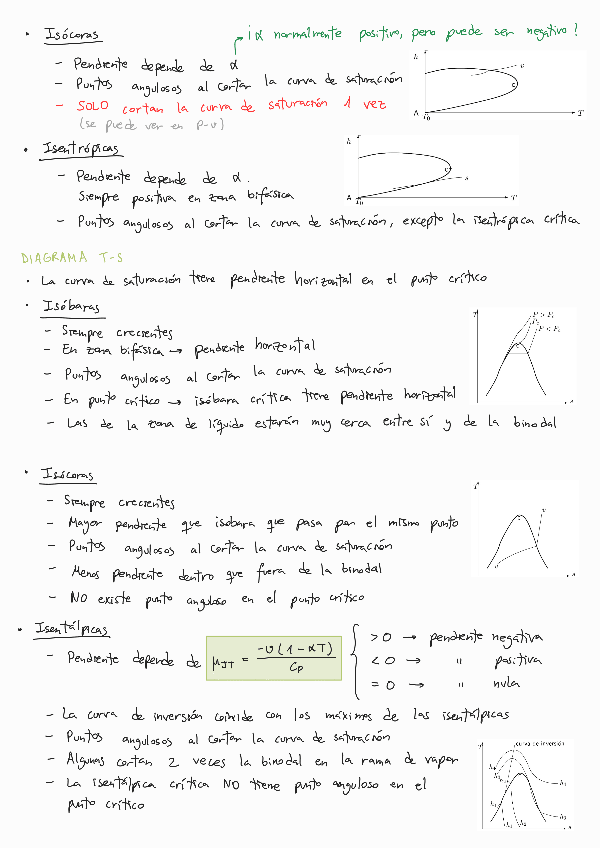 ¡α normalmente positivo, pero puede ser negativo!
• Isócoras
– Pendiente depende de α
– Puntos angulosos al cortar la curva de saturación
– SOLO cortan la curva de saturación 1 vez
(se puede ver en P-v)
h
v
c
A
T₀
T
• Isentrópicas
– Pendiente depende de α.
Siempre positiva en zona bifásica
– Puntos angulosos al cortar la curva de saturación, excepto la isentrópica crítica
h
c
s
A
T₀
T
DIAGRAMA T-S
• La curva de saturación tiene pendiente horizontal en el punto crítico
• Isóbaras
– Siempre crecientes
– En zona bifásica → pendiente horizontal
– Puntos angulosos al cortar la curva de saturación
– En punto crítico → isóbara crítica tiene pendiente horizontal
– Las de la zona de líquido estarán muy cerca entre sí y de la binodal
T
• Isócoras
– Siempre crecientes
– Mayor pendiente que isobara que pasa por el mismo punto
– Puntos angulosos al cortar la curva de saturación
– Menos pendiente dentro que fuera de la binodal
– NO existe punto anguloso en el punto crítico
T
v
• Isentálpicas
– Pendiente depende de μ_JT = -v(1-αT) / Cp
> 0 → pendiente negativa
< 0 → " positiva
= 0 → " nula
– La curva de inversión coincide con los máximos de las isentálpicas
– Puntos angulosos al cortar la curva de saturación
– Algunas cortan 2 veces la binodal en la rama de vapor
– La isentálpica crítica NO tiene punto anguloso en el
punto crítico
T
curva de inversión